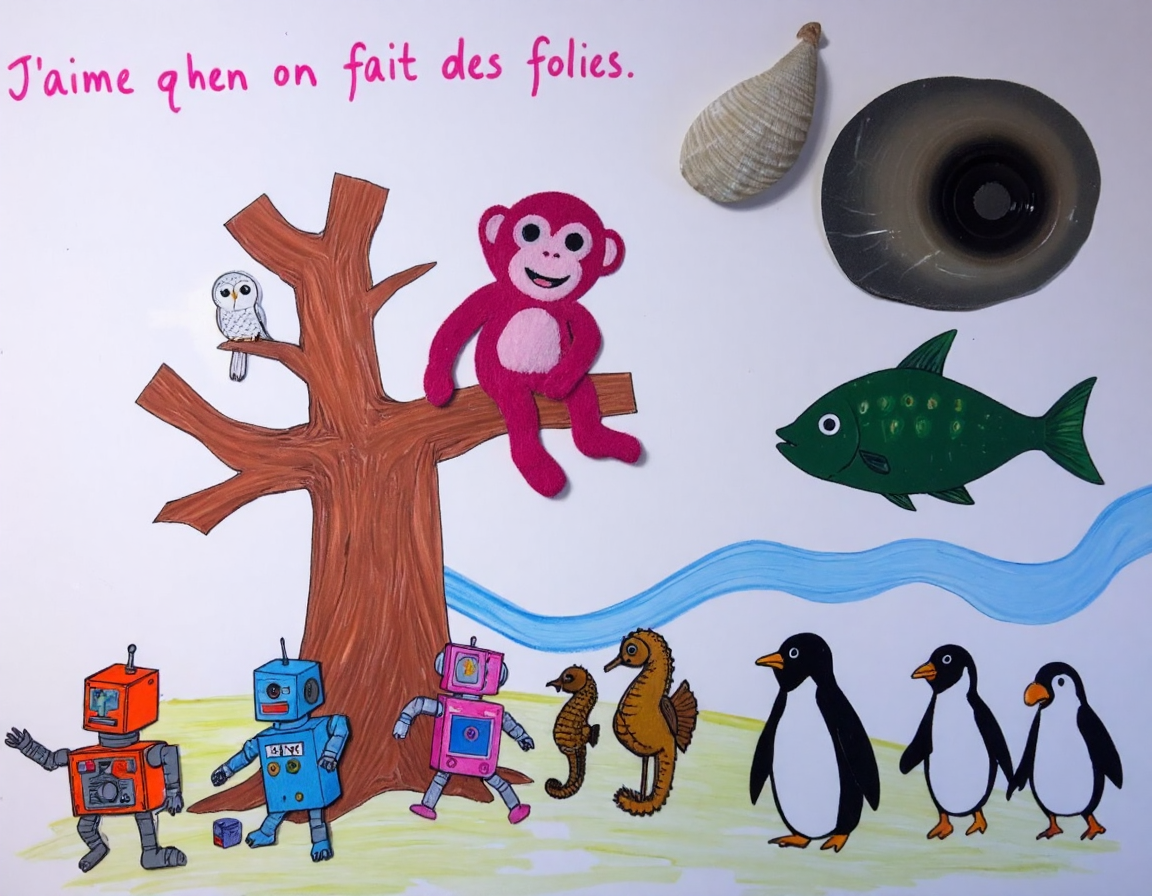 J'aime qhen on fait des folies.